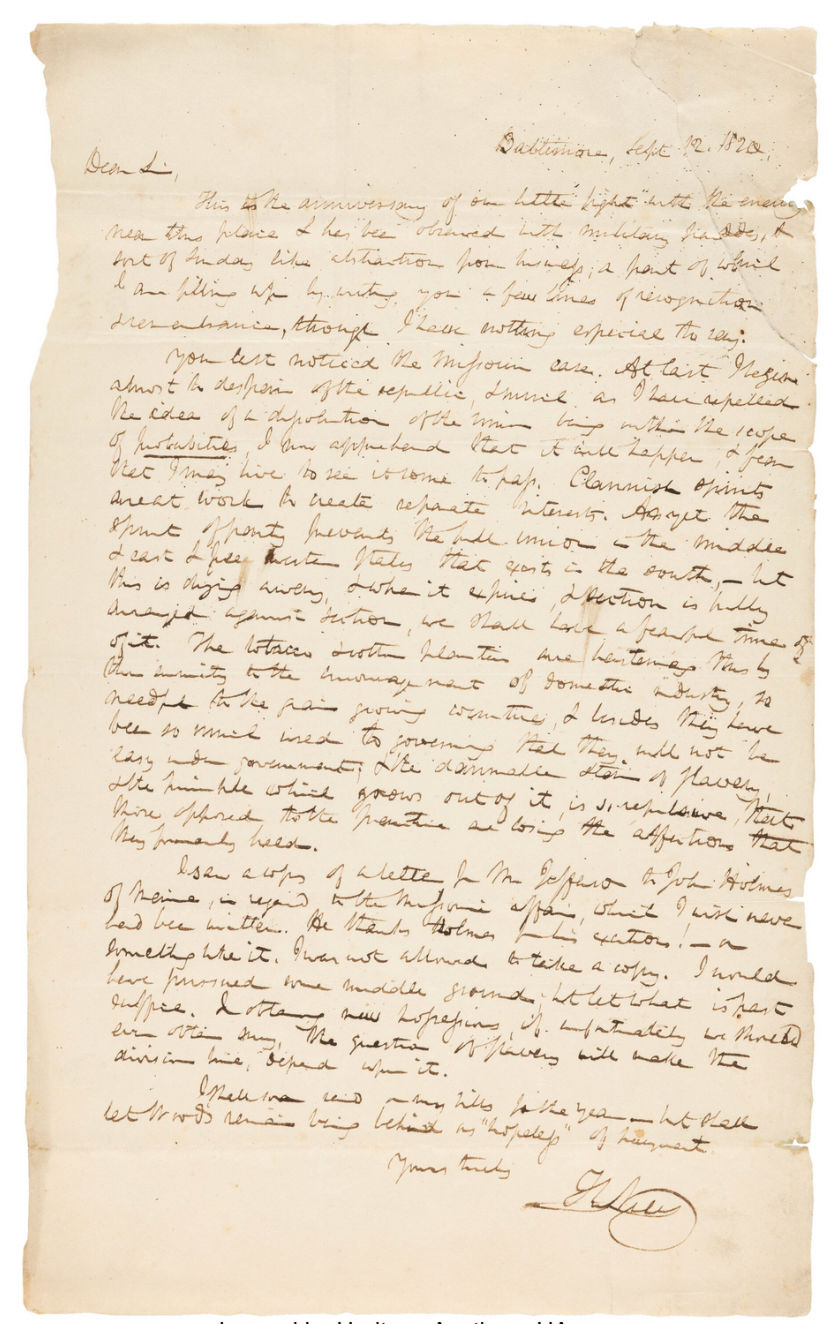 Baltimore, Sept 12. 1820.
Dear Sir,
This is the anniversary of our little "fight" with the enemy
near this place & has been observed with military parades, &
sort of Sunday like abstraction from business; a part of which
I am filling up by writing you a few lines of recognition
remembrance, though I have nothing especial to say.
You last noticed the Missouri case. At last I begin
almost to despair of the republic, & much as I have repelled
the idea of a dissolution of the union being within the scope
of probabilities, I now apprehend that it will happen, & fear
that I may live to see it come to pass. Clannish spirits
are at work to create separate interests. As yet the
spirit of party prevents the full union in the middle
& east & free western States that exists in the south, — but
this is dying away, & when it expires, & section is fully
arrayed against section, we shall have a fearful time of
of it. The tobacco & cotton planters are hastening this by
their enmity to the encouragement of domestic industry, so
needful to the grain growing countries, & besides they have
been so much used to governing that they will not be
easy under government; & the damnable stain of slavery,
& the principle which grows out of it, is so repulsive, that
those opposed to the practice are losing the affections that
they formerly had.
I saw a copy of a letter fr Mr Jefferson to John Holmes
of Maine, in regard to the Missouri affair, which I wish never
had been written. He thanks Holmes for his exertions! — or
something like it. I was not allowed to take a copy. I would
have pursued some middle ground; but let what is past
suffice. In obtaining new if unfortunately we should
ever obtain any, the question of slavery will make the
division line, depend upon it.
I shall soon send on my bills for the year — but shall
let Woods remain being behind as "hopeless" of payment.
Yours truly
H Niles